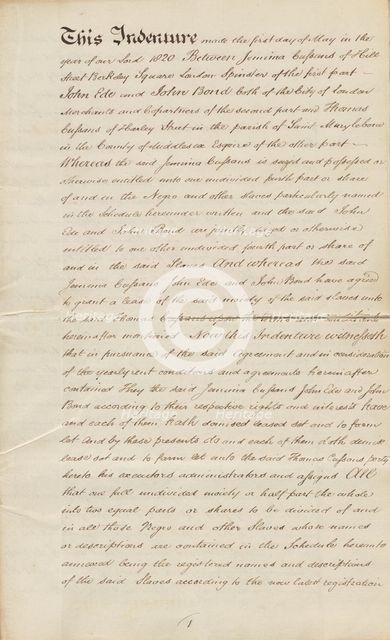 This Indenture made the first day of May in the
year of our Lord 1820 Between Jemima Cussans of Hill
Street Berkeley Square London Spinster of the first part
John Ede and John Bond both of the City of London
Merchants and Copartners of the second part and Thomas
Cussans of Harley Street in the parish of Saint Marylebone
in the County of Middlesex Esquire of the other part
Whereas the said Jemima Cussans is seized and possessed or
otherwise entitled unto one undivided fourth part or share
of and in the Negro and other slaves particularly named
in the Schedule hereunder written and the said John
Ede and John Bond are possessed or otherwise
entitled to one other undivided fourth part or share of
and in the said Slaves And whereas the said
Jemima Cussans John Ede and John Bond have agreed
to grant a Lease of the said moiety of the said slaves unto
the said Thomas Cussans upon the
hereinafter mentioned Now this Indenture witnesseth
that in pursuance of the said agreement and in consideration
of the yearly rent conditions and agreements hereinafter
contained They the said Jemima Cussans John Ede and John
Bond according to their respective rights and interests have
and each of them Hath demised leased set and to farm
let and by these presents do and each of them doth demise
lease set and to farm let unto the said Thomas Cussans party
hereto his executors administrators and assigns All
that one full undivided moiety or half part the whole
into two equal parts or shares to be divided of and
in all those Negro and other Slaves whose names
or descriptions are contained in the Schedule hereunto
annexed being the registered names and descriptions
of the said Slaves according to the now latest registration
1